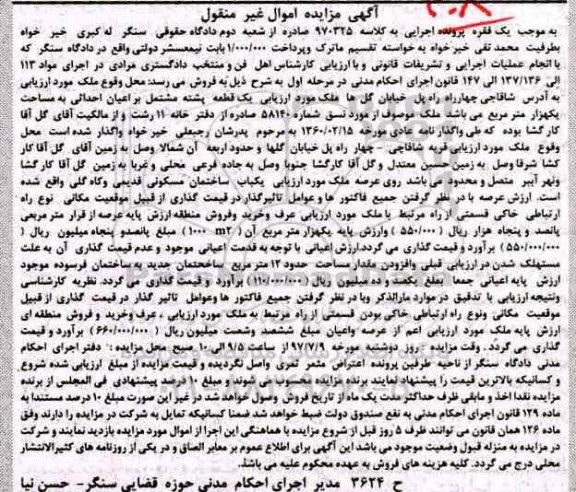 آگهی مزایده اموال غیر منقول
به موجب یک فقره پرونده اجرایی به کلاسه ۹۷۰۳۲۵ صادره از شعبه دوم دادگاه حقوقی سنگر له کبری خیر خواه
بطرفیت محمد تقی خیر خواه به خواسته تقسیم ماترک وپرداخت ۱/۰۰۰/۰۰۰ بابت نیمعسشر دولتی واقع در دادگاه سنگر که
با انجام عملیات اجرایی و تشریفات قانونی و با ارزیابی کارشناس اهل فن و منتخب دادگستری مرادی در اجرای مواد ۱۱۳
الی ۱۳۷/۱۳۶ الی ۱۴۷ قانون اجرای احکام مدنی در مرحله اول به شرح ذیل به فروش می رسد: محل وقوع ملک مورد ارزیابی
به آدرس شاقاجی چهارراه پل خیابان گل ها ملک مورد ارزیابی یک قطعه پشته مشتمل بر اعیان احداثی به مساحت
یکهزار متر مربع می باشد ملک موصوف از مورد نسق شماره ۵۸۱۴۰ صادره از دفتر خانه ۱۱ رشت و از مالکیت آقای گل آقا
کار گشا بوده که طی واگذار نامه عادی مورخه ۱۳۶۰/۰۲/۱۵ به مرحوم پدرشان رجبعلی خیر خواه واگذار شده است محل
وقوع ملک مورد ارزیابی قریه شاقاجی - چهار راه پل خیابان گلها و حدود اربعه آن شمالا وصل به زمین آقای گل آقا کار
کشا شرقا وصل به زمین حسین معتدل و گل آقا کارگشا جنوبا وصل به جاده فرعی محلی و غربا به زمین گل آقا کار گشا
ونهر آبیر متصل و محدود می باشد روی عرصه ملک مورد ارزیابی یکباب ساختمان مسکونی قدیمی وکاه گلی واقع شده
است. ارزش عرصه با در نظر گرفتن جمیع فاکتور ها و عوامل تاثیرگذار در قیمت گذاری از قبیل موقعیت مکانی نوع راه
ارتباطی خاکی قسمتی از راه مرتبط با ملک مورد ارزیابی عرف وخرید وفروش منطقه ارزش پایه عرصه از قرار متر مربعی
پانصد و پنجاه هزار ریال ( ۵۵۰/۰۰۰ ) وارزش پایه یکهزار متر مربع آن ( ۱۰۰۰ m۲ ) مبلغ پانصدو پنجاه میلیون ریال (
۵۵۰/۰۰۰/۰۰۰ ) برآورد و قیمت گذاری می گردد.ارزش اعیانی با توجه به قدمت اعیانی موجود و عدم قیمت گذاری آن به علت
مستهلک شدن در ارزیابی قبلی وافزودن مقدار مساحت حدود ۱۲ متر مربع ساختمان جدید به ساختمان فرسوده موجود
ارزش پایه اعیانی جمعا بمبلغ یکصد و ده میلیون ریال ۱۱۰/۰۰۰/۰۰۰ برآورد و قیمت گذاری می گردد. نظریه کارشناسی
ونتیجه ارزیابی با تدقیق در موارد مارالذکر وبا در نظر گرفتن جمیع فاکتور ها وعوامل تاثیر گذار در قیمت گذاری از قبیل
موقعیت مکانی ونوع راه ارتباطی خاکی بودن قسمتی از راه مرتبط به ملک مورد ارزیابی ، عرف وخرید و فروش منطقه ای
ارزش پایه ملک مورد ارزیابی اعم از عرصه واعیان مبلغ ششصد وشصت میلیون ریال ( ۶۶۰/۰۰۰/۰۰۰ ) برآورد و قیمت
گذاری می گردد . وقت مزایده : روز دوشنبه مورخه ۹۷/۷/۹ از ساعت ۹/۵ الی ۱۰ صبح محل مزایده : دفتر اجرای احکام
مدنی دادگاه سنگر از ناحیه طرفین پرونده اعتراض مثمر ثمری واصل نگردیده و قیمت مزایده از مبلغ ارزیابی شده شروع
و کسانیکه بالاترین قیمت را پیشنهاد نمایند برنده مزایده محسوب می شوند و مبلغ ۱۰ درصد پیشنهادی فی المجلس از برنده
مزایده نقدا اخذ و مابقی ظرف حداکثر مدت یک ماه از تاریخ فروش وصول خواهد شد در غیر این صورت مبلغ ۱۰ درصد مستندا به
ماده ۱۲۹ قانون اجرای احکام مدنی به نفع صندوق دولت ضبط خواهد شد ضمنا کسانیکه تمایل به شرکت در مزایده را دارند وفق
ماده ۱۲۶ همان قانون می توانند ظرف ۵ روز قبل از شروع مزایده با هماهنگی این اجرا از اموال مورد مزایده بازدید نمایند و شرکت
در مزایده به منزله قبول وضعیت موجود می باشد این آگهی برای اطلاع عموم بر معابر الصاق و در یکی از روزنامه های کثیرالانتشار
محلی درج می گردد. کلیه هزینه های فروش به عهده محکوم علیه می باشد.
ح ۳۶۲۴ مدیر اجرای احکام مدنی حوزه قضایی سنگر- حسن نیا